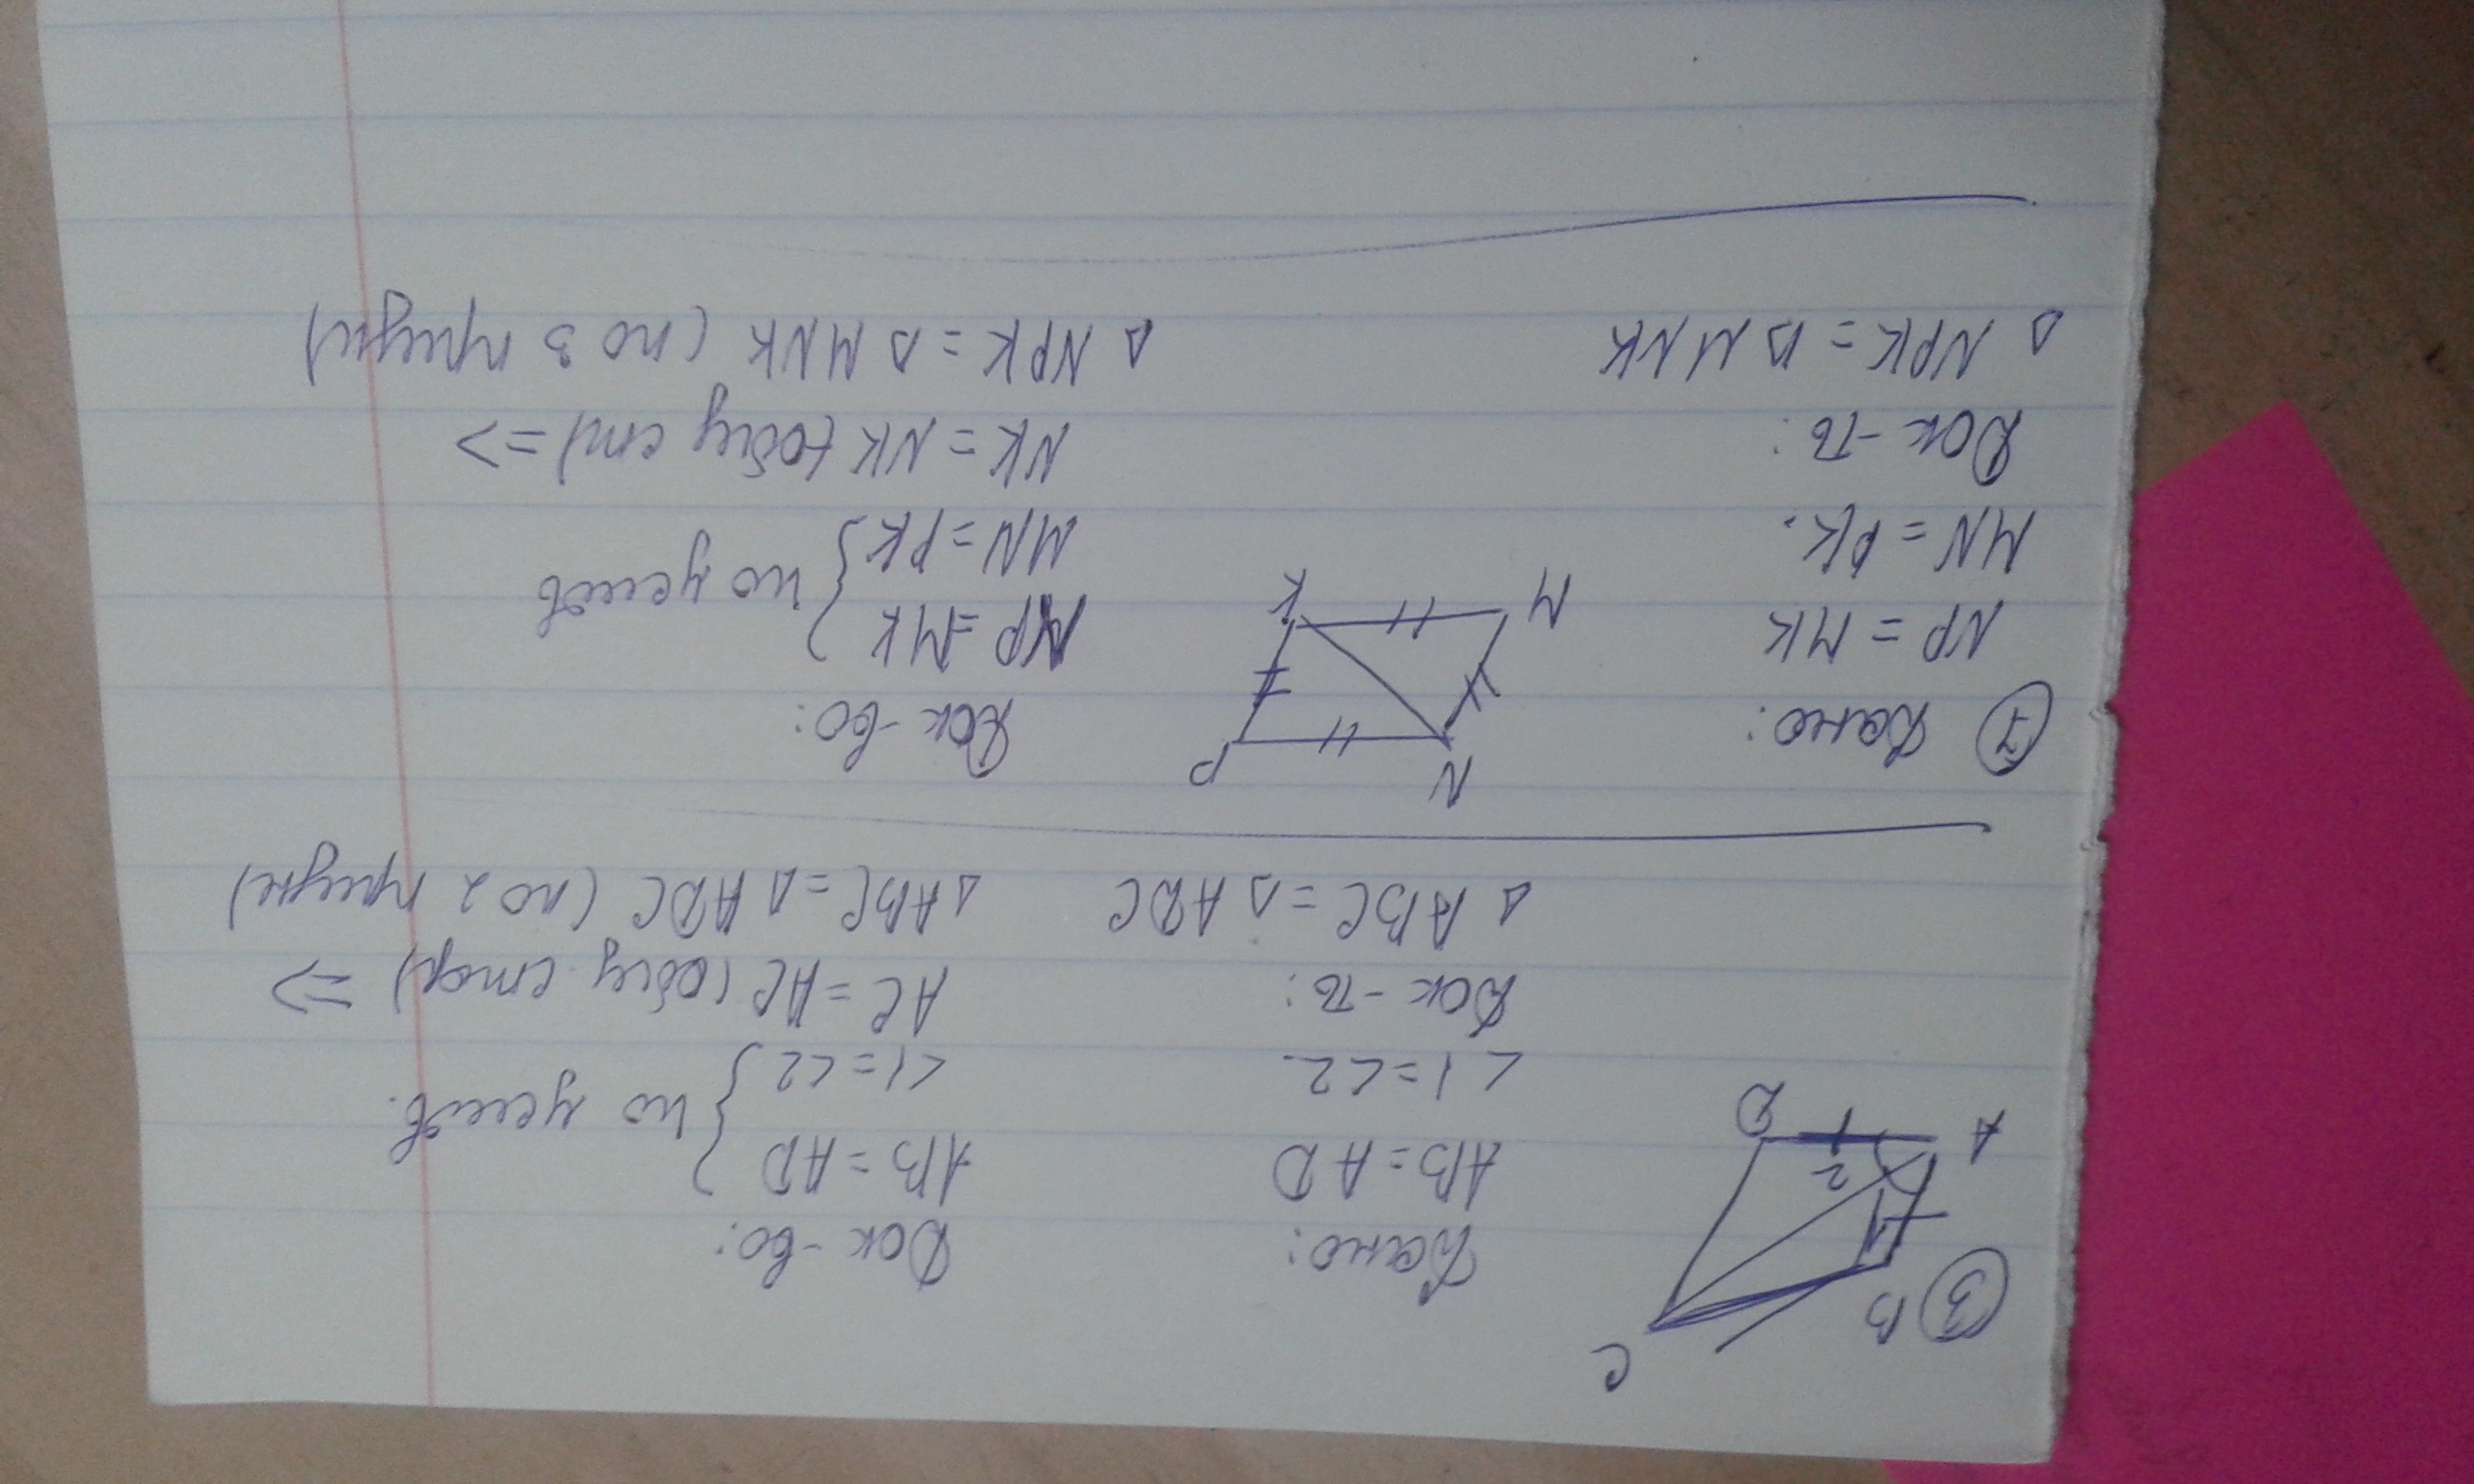 ③
C
B
1
2
A
D
Дано:
AB = AD
<1 = <2.
Док-ть:
△ ABC = △ ADC
Док-во:
AB = AD
<1 = <2 } по услов.
AC = AC (общ стор) =>
△ ABC = △ ADC (по 2 призн)
⑦ Дано:
NP = MK
MN = PK.
Док-ть:
△ NPK = △ MNK
N
P
M
K
Док-во:
NP = MK
MN = PK } по услов
NK = NK (общ ст) =>
△ NPK = △ MNK (по 3 призн)